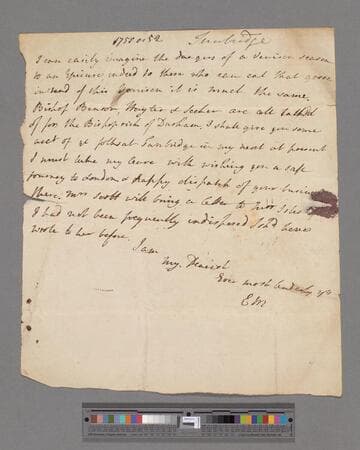 1751 or 52 Tunbridge
I can easily imagine the dangers of a Venison season
to an Epicure, indeed to those who can eat that goose
instead of this Venison it is much the same.
Bishop Benson, & Secker are all talk'd
of for the Bishoprick of Durham, I shall give you some
acct of ye folks at Tunbridge in my next at present
I must take my leave with wishing you a safe
journey to London & happy dispatch of your business
there. Mrs Scott will bring a letter to
I had not been frequently indisposed I shd have
wrote to her before.
I am
My Dearest
Ever most tenderly yrs
EM